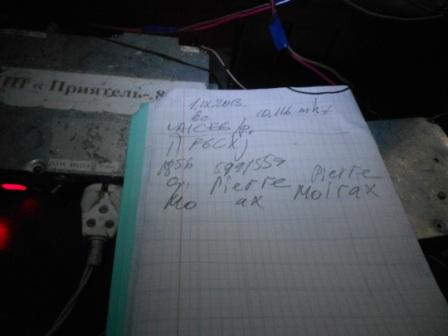 ПТ «Приятель-8
1.IX.2013.
10,116 mhz
UA1CEG/p.
F6CX
1856 599/559
op. Pierre Pierre
Mo ax Moirax